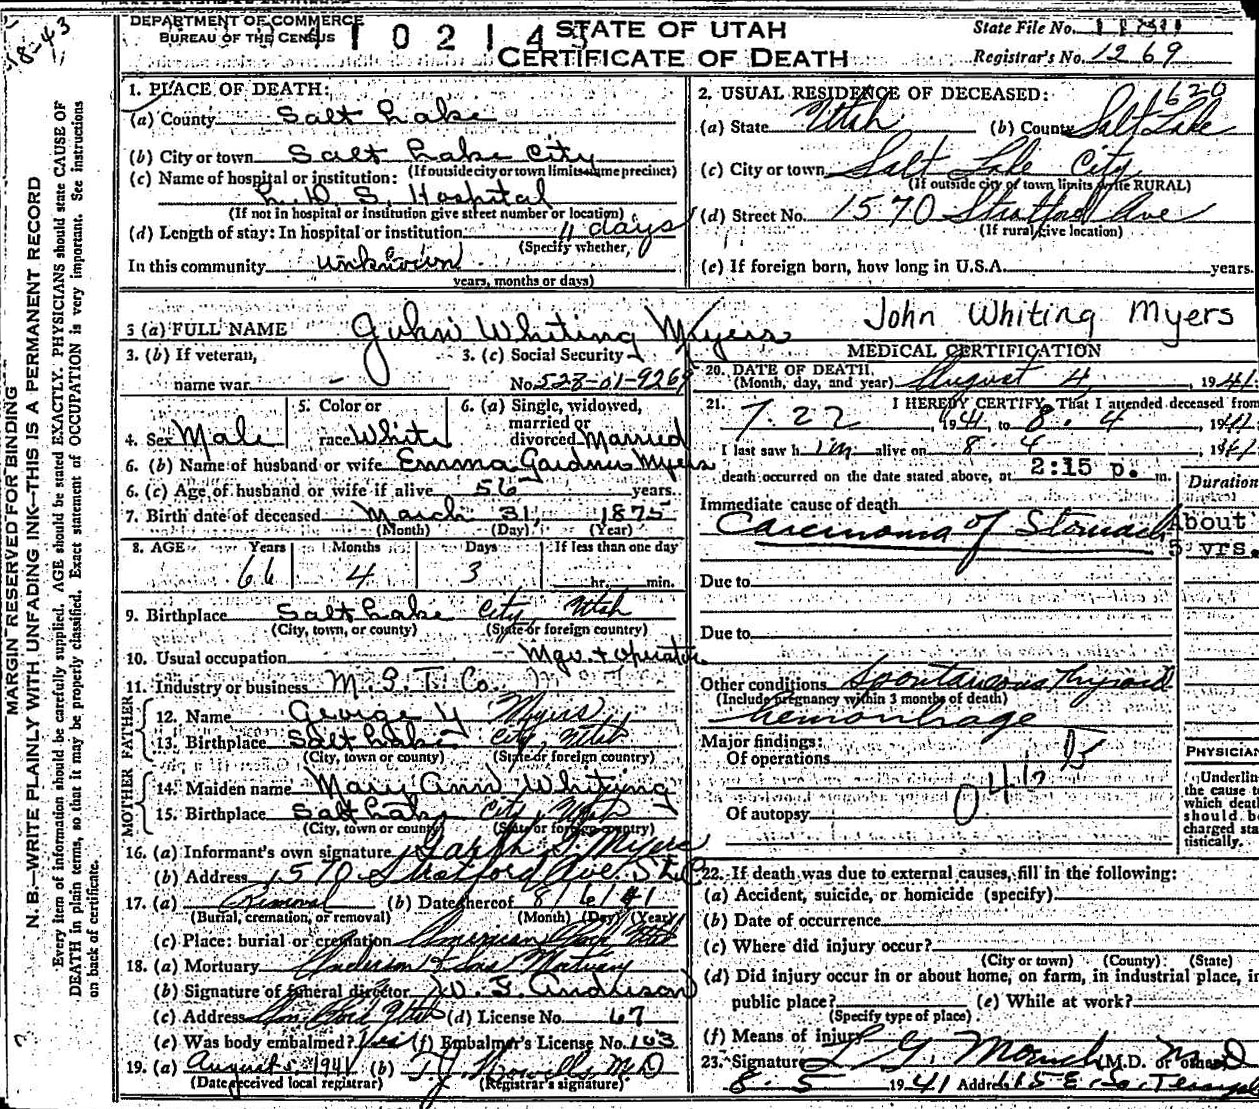 DEPARTMENT OF COMMERCE
BUREAU OF THE CENSUS
STATE OF UTAH
CERTIFICATE OF DEATH
State File No.
Registrar's No. 1269
18-43
MARGIN RESERVED FOR BINDING
N. B.—WRITE PLAINLY WITH UNFADING INK—THIS IS A PERMANENT RECORD
Every item of information should be carefully supplied. AGE should be stated EXACTLY. PHYSICIANS should state CAUSE OF
DEATH in plain terms, so that it may be properly classified. Exact statement of OCCUPATION is very important. See instructions
on back of certificate.
1. PLACE OF DEATH:
(a) County Salt Lake
(b) City or town Salt Lake City
(If outside city or town limits name precinct)
(c) Name of hospital or institution:
L. D. S. Hospital
(If not in hospital or institution give street number or location)
(d) Length of stay: In hospital or institution 11 days
(Specify whether,
In this community unknown
years, months or days)
2. USUAL RESIDENCE OF DECEASED: 620
(a) State Utah (b) County Salt Lake
(c) City or town Salt Lake City
(If outside city or town limits write RURAL)
(d) Street No. 1570 Stratford Ave
(If rural, give location)
(e) If foreign born, how long in U.S.A. years.
3 (a) FULL NAME John Whiting Myers
John Whiting Myers
3. (b) If veteran,
name war -
3. (c) Social Security
No. 528-01-9269
4. Sex Male
5. Color or
race White
6. (a) Single, widowed,
married or
divorced Married
6. (b) Name of husband or wife Emma Gardner Myers
6. (c) Age of husband or wife if alive 56 years.
7. Birth date of deceased March 31, 1875
(Month) (Day) (Year)
8. AGE Years Months Days If less than one day
66 4 3 hr. min.
9. Birthplace Salt Lake City Utah
(City, town, or county) (State or foreign country)
10. Usual occupation Mgr. + operator
11. Industry or business M. S. T. Co.
FATHER
12. Name George Y Myers
13. Birthplace Salt Lake City, Utah
(City, town, or county) (State or foreign country)
MOTHER
14. Maiden name Mary Ann Whiting
15. Birthplace Salt Lake City Utah
(City, town or county) (State or foreign country)
16. (a) Informant's own signature Myers
(b) Address 1570 Stratford Ave. SLC
17. (a) Removal (b) Date thereof 8/6/41
(Burial, cremation, or removal) (Month) (Day) (Year)
(c) Place: burial or cremation American Fork Utah
18. (a) Mortuary Anderson & Sons Mortuary
(b) Signature of funeral director W. Anderson
(c) Address Am. Fork Utah (d) License No. 67
(e) Was body embalmed? Yes (f) Embalmer's License No. 103
19. (a) August 5 1941 (b) T. J. Howells M.D
(Date received local registrar) (Registrar's signature)
MEDICAL CERTIFICATION
20. DATE OF DEATH
(Month, day, and year) August 4, 1941.
21. I HEREBY CERTIFY, That I attended deceased from
7. 22, 1941, to 8. 4, 1941
I last saw him alive on 8. 4, 1941
death occurred on the date stated above, at 2:15 p. m.
Duration
Immediate cause of death
Carcinoma of Stomach
About
5 yrs.
Due to
Due to
Other conditions Spontaneous Thyroid
(Include pregnancy within 3 months of death)
hemorrhage
Major findings:
Of operations
Of autopsy
PHYSICIAN
Underlin
the cause to
which deat
should be
charged sta
tistically.
22. If death was due to external causes, fill in the following:
(a) Accident, suicide, or homicide (specify)
(b) Date of occurrence
(c) Where did injury occur?
(City or town) (County) (State)
(d) Did injury occur in or about home, on farm, in industrial place, in
public place? (e) While at work?
(Specify type of place)
(f) Means of injury
23. Signature L. G. (M.D. or other) M.D
8-5 1941 Address 115 E. So. Temple